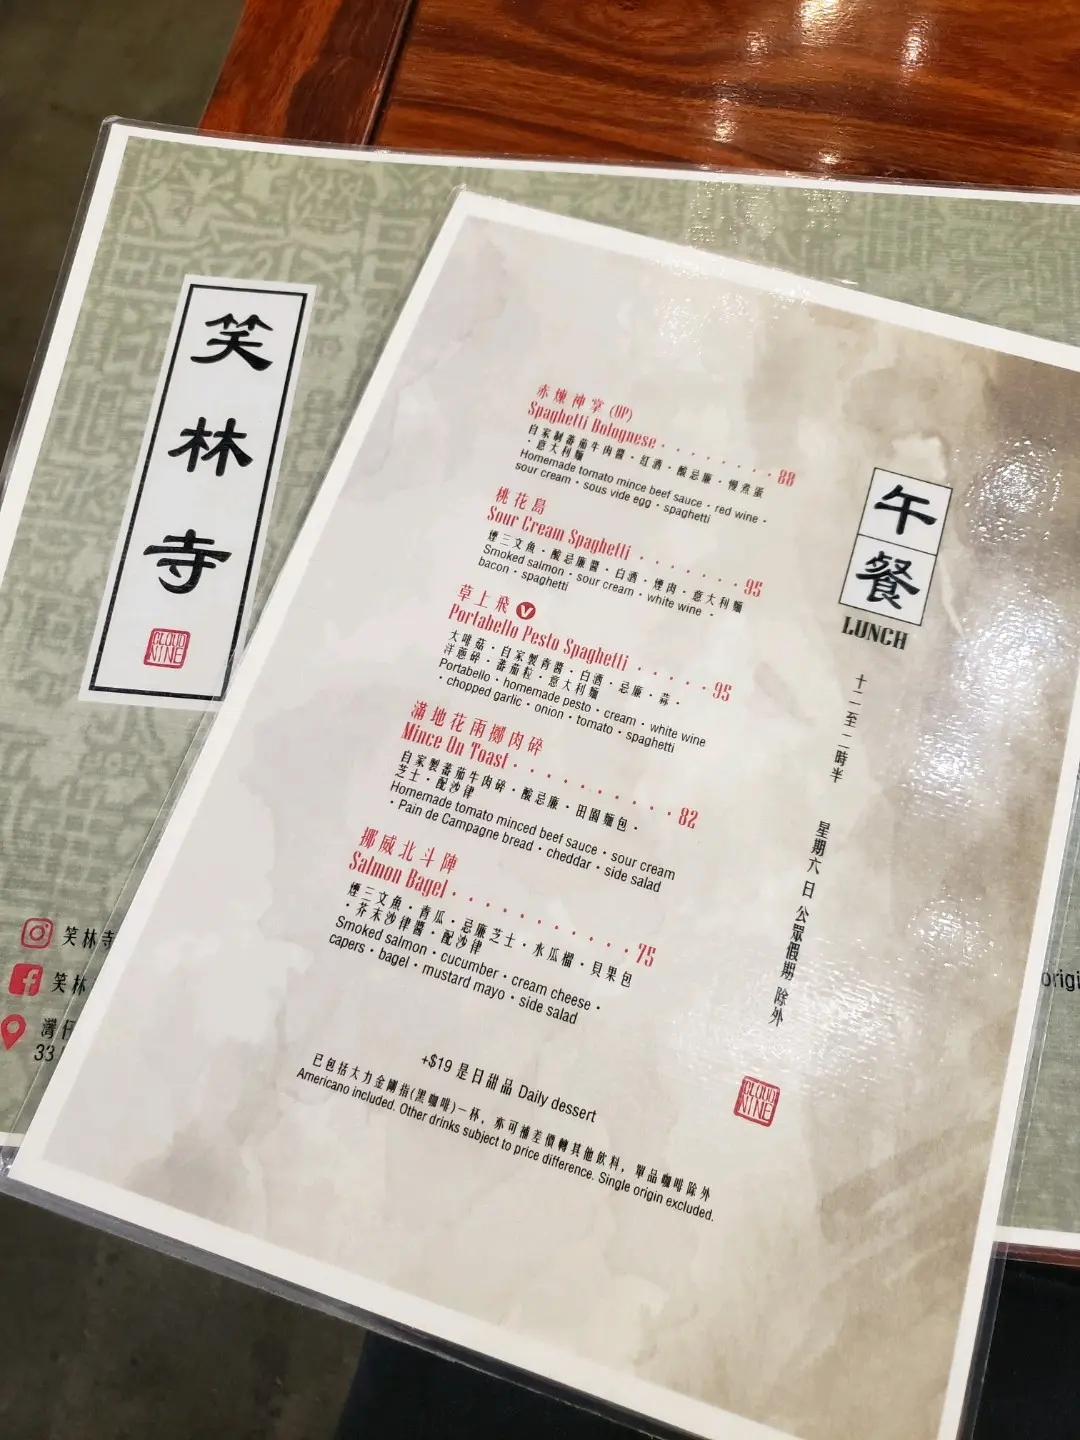 笑林寺
CLOUD
NINE
笑林寺
笑林
灣仔
33
赤煉神掌 (HP)
Spaghetti Bolognese 88
自家制番茄牛肉醬・紅酒・酸忌廉・慢煮蛋
・意大利麵
Homemade tomato mince beef sauce・red wine・
sour cream・sous vide egg・spaghetti
桃花島
Sour Cream Spaghetti 95
煙三文魚・酸忌廉醬・白酒・煙肉・意大利麵
Smoked salmon・sour cream・white wine・
bacon・spaghetti
草上飛 V
Portabello Pesto Spaghetti 95
大啡菇・自家製青醬・白酒・忌廉・蒜・
洋蔥碎・番茄粒・意大利麵
Portabello・homemade pesto・cream・white wine
・chopped garlic・onion・tomato・spaghetti
滿地花雨擲肉碎
Mince On Toast 82
自家製蕃茄牛肉碎・酸忌廉・田園麵包・
芝士・配沙律
Homemade tomato minced beef sauce・sour cream
・Pain de Campagne bread・cheddar・side salad
挪威北斗陣
Salmon Bagel 75
煙三文魚・青瓜・忌廉芝士・水瓜榴・貝果包
・芥末沙律醬・配沙律
Smoked salmon・cucumber・cream cheese・
capers・bagel・mustard mayo・side salad
+$19 是日甜品 Daily dessert
已包括大力金剛指(黑咖啡)一杯，亦可補差價轉其他飲料，單品咖啡除外
Americano included. Other drinks subject to price difference. Single origin excluded.
午餐
LUNCH
十二至二時半
星期六日公眾假期除外
CLOUD
NINE
origi